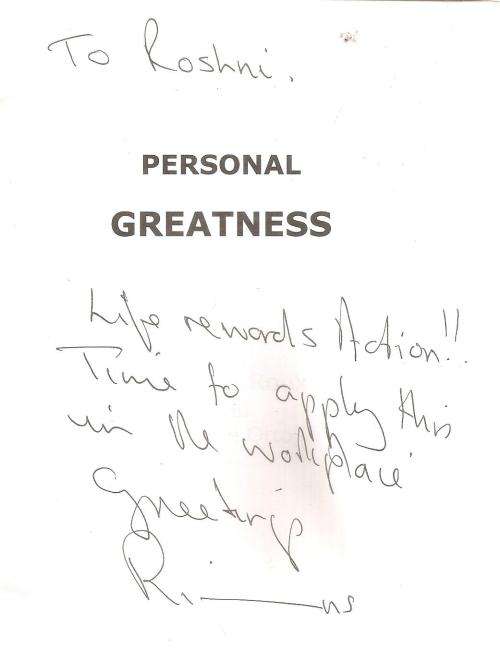 To Roshni.
PERSONAL
GREATNESS
Life rewards Action!!
Time to apply this
in the workplace
Greetings